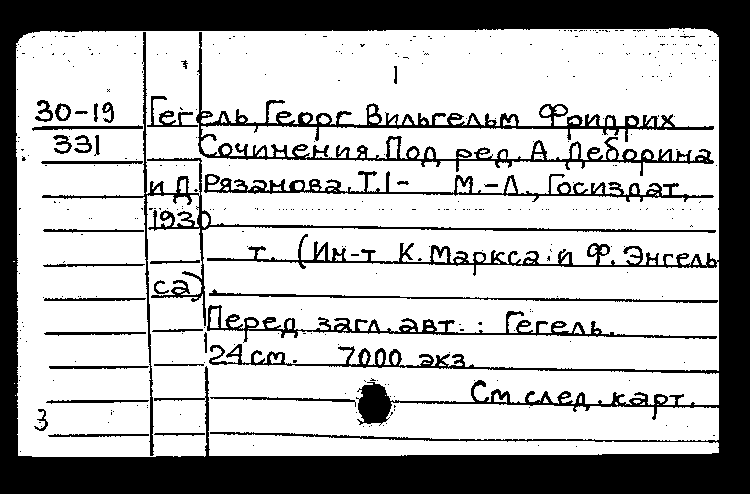 1
30-19 Гегель, Георг Вильгельм Фридрих
331 Сочинения. Под ред. А. Деборина
и Д. Рязанова. Т.1- М.-Л., Госиздат,
1930
т. (Ин-т К. Маркса и Ф. Энгель
са).
Перед загл. авт.: Гегель.
24 см. 7000 экз.
См. след. карт.
3